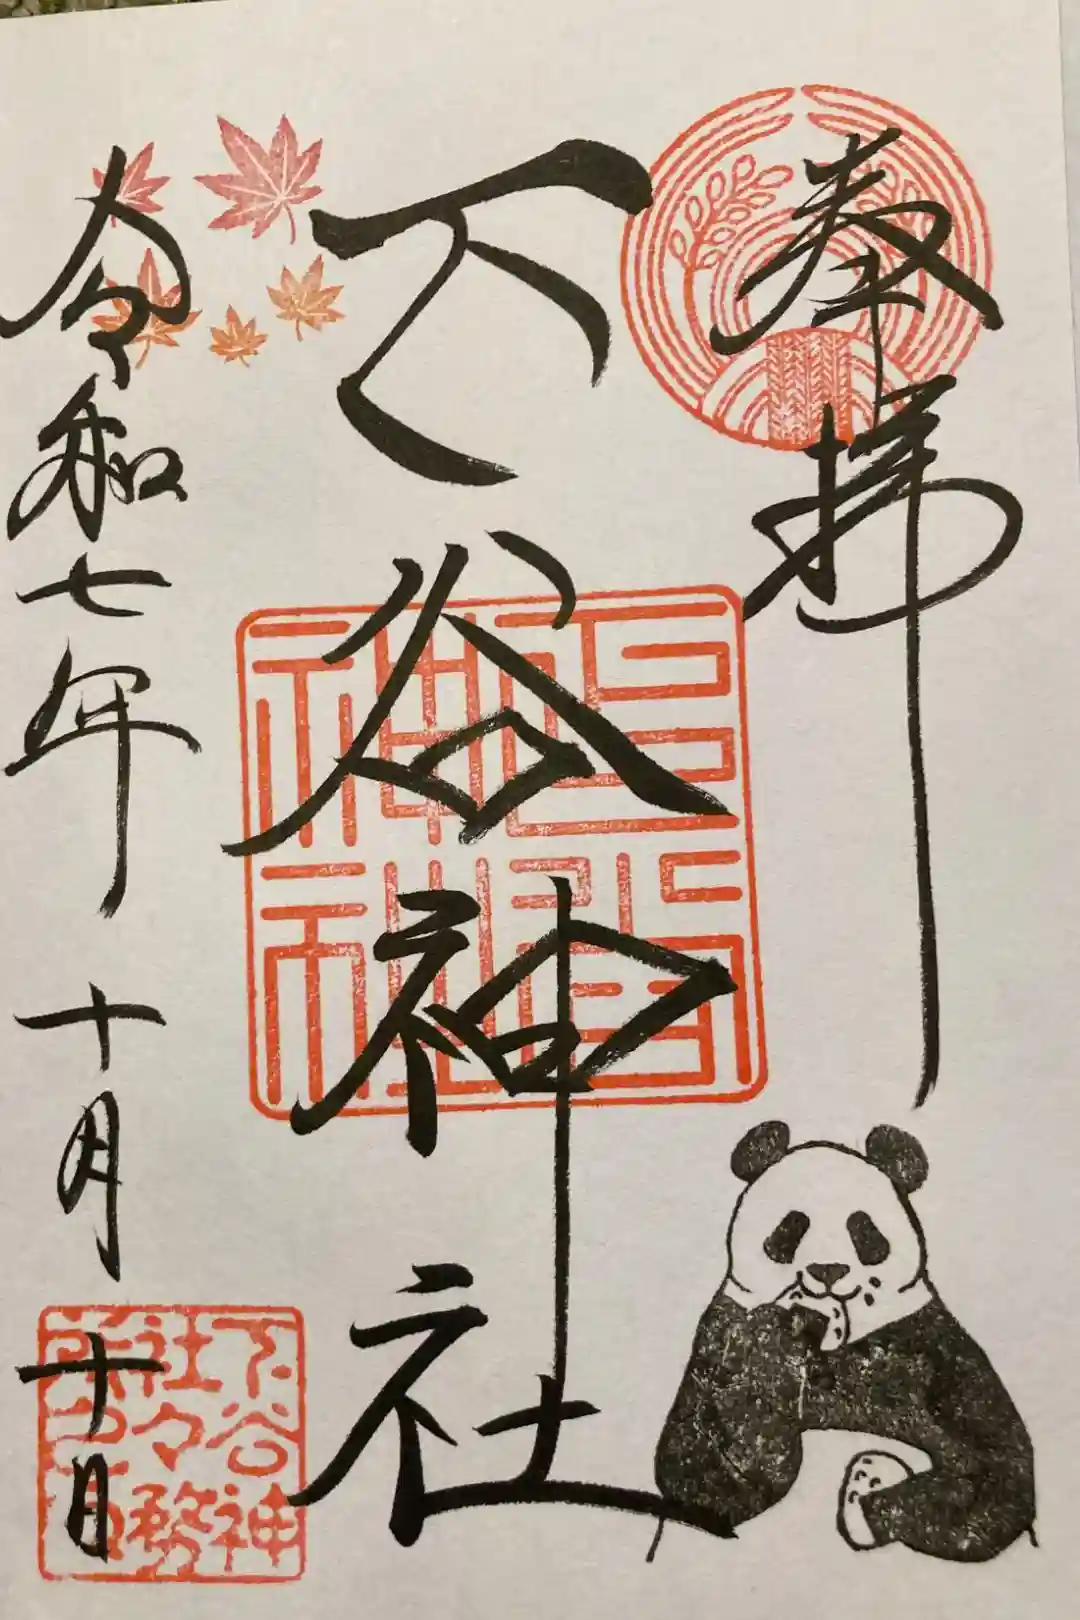 奉拝
下谷神社
令和七年 十月 十日
下谷神
社々務
所之印